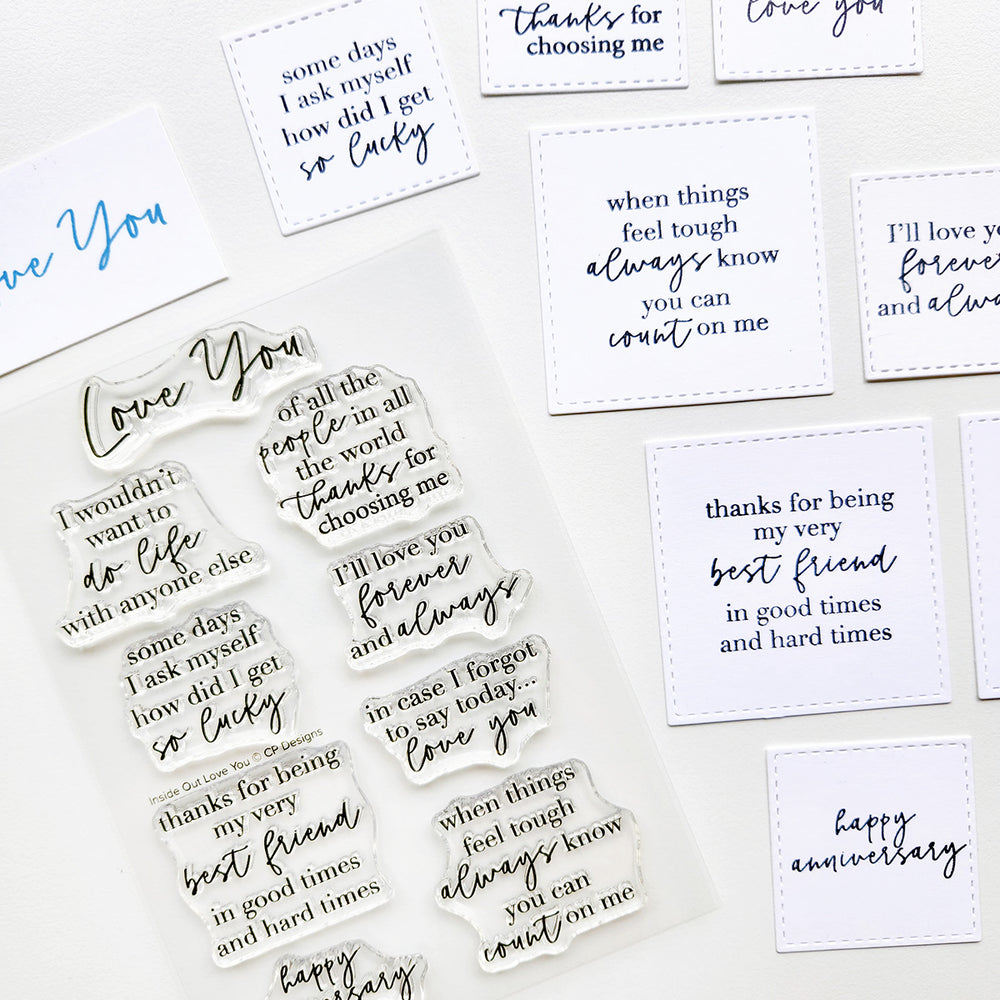 some days
I ask myself
how did I get
so lucky
thanks for
choosing me
love you
You
when things
feel tough
always know
you can
count on me
I'll love
forever
and
thanks for being
my very
best friend
in good times
and hard times
happy
anniversary
Love You
of all the
people in all
the world
thanks for
choosing me
I wouldn't
want to
do life
with anyone else
I'll love you
forever
and always
some days
I ask myself
how did I get
so lucky
in case I forgot
to say today...
love you
Inside Out Love You © CP Designs
thanks for being
my very
best friend
in good times
and hard times
when things
feel tough
always know
you can
count on me
happy